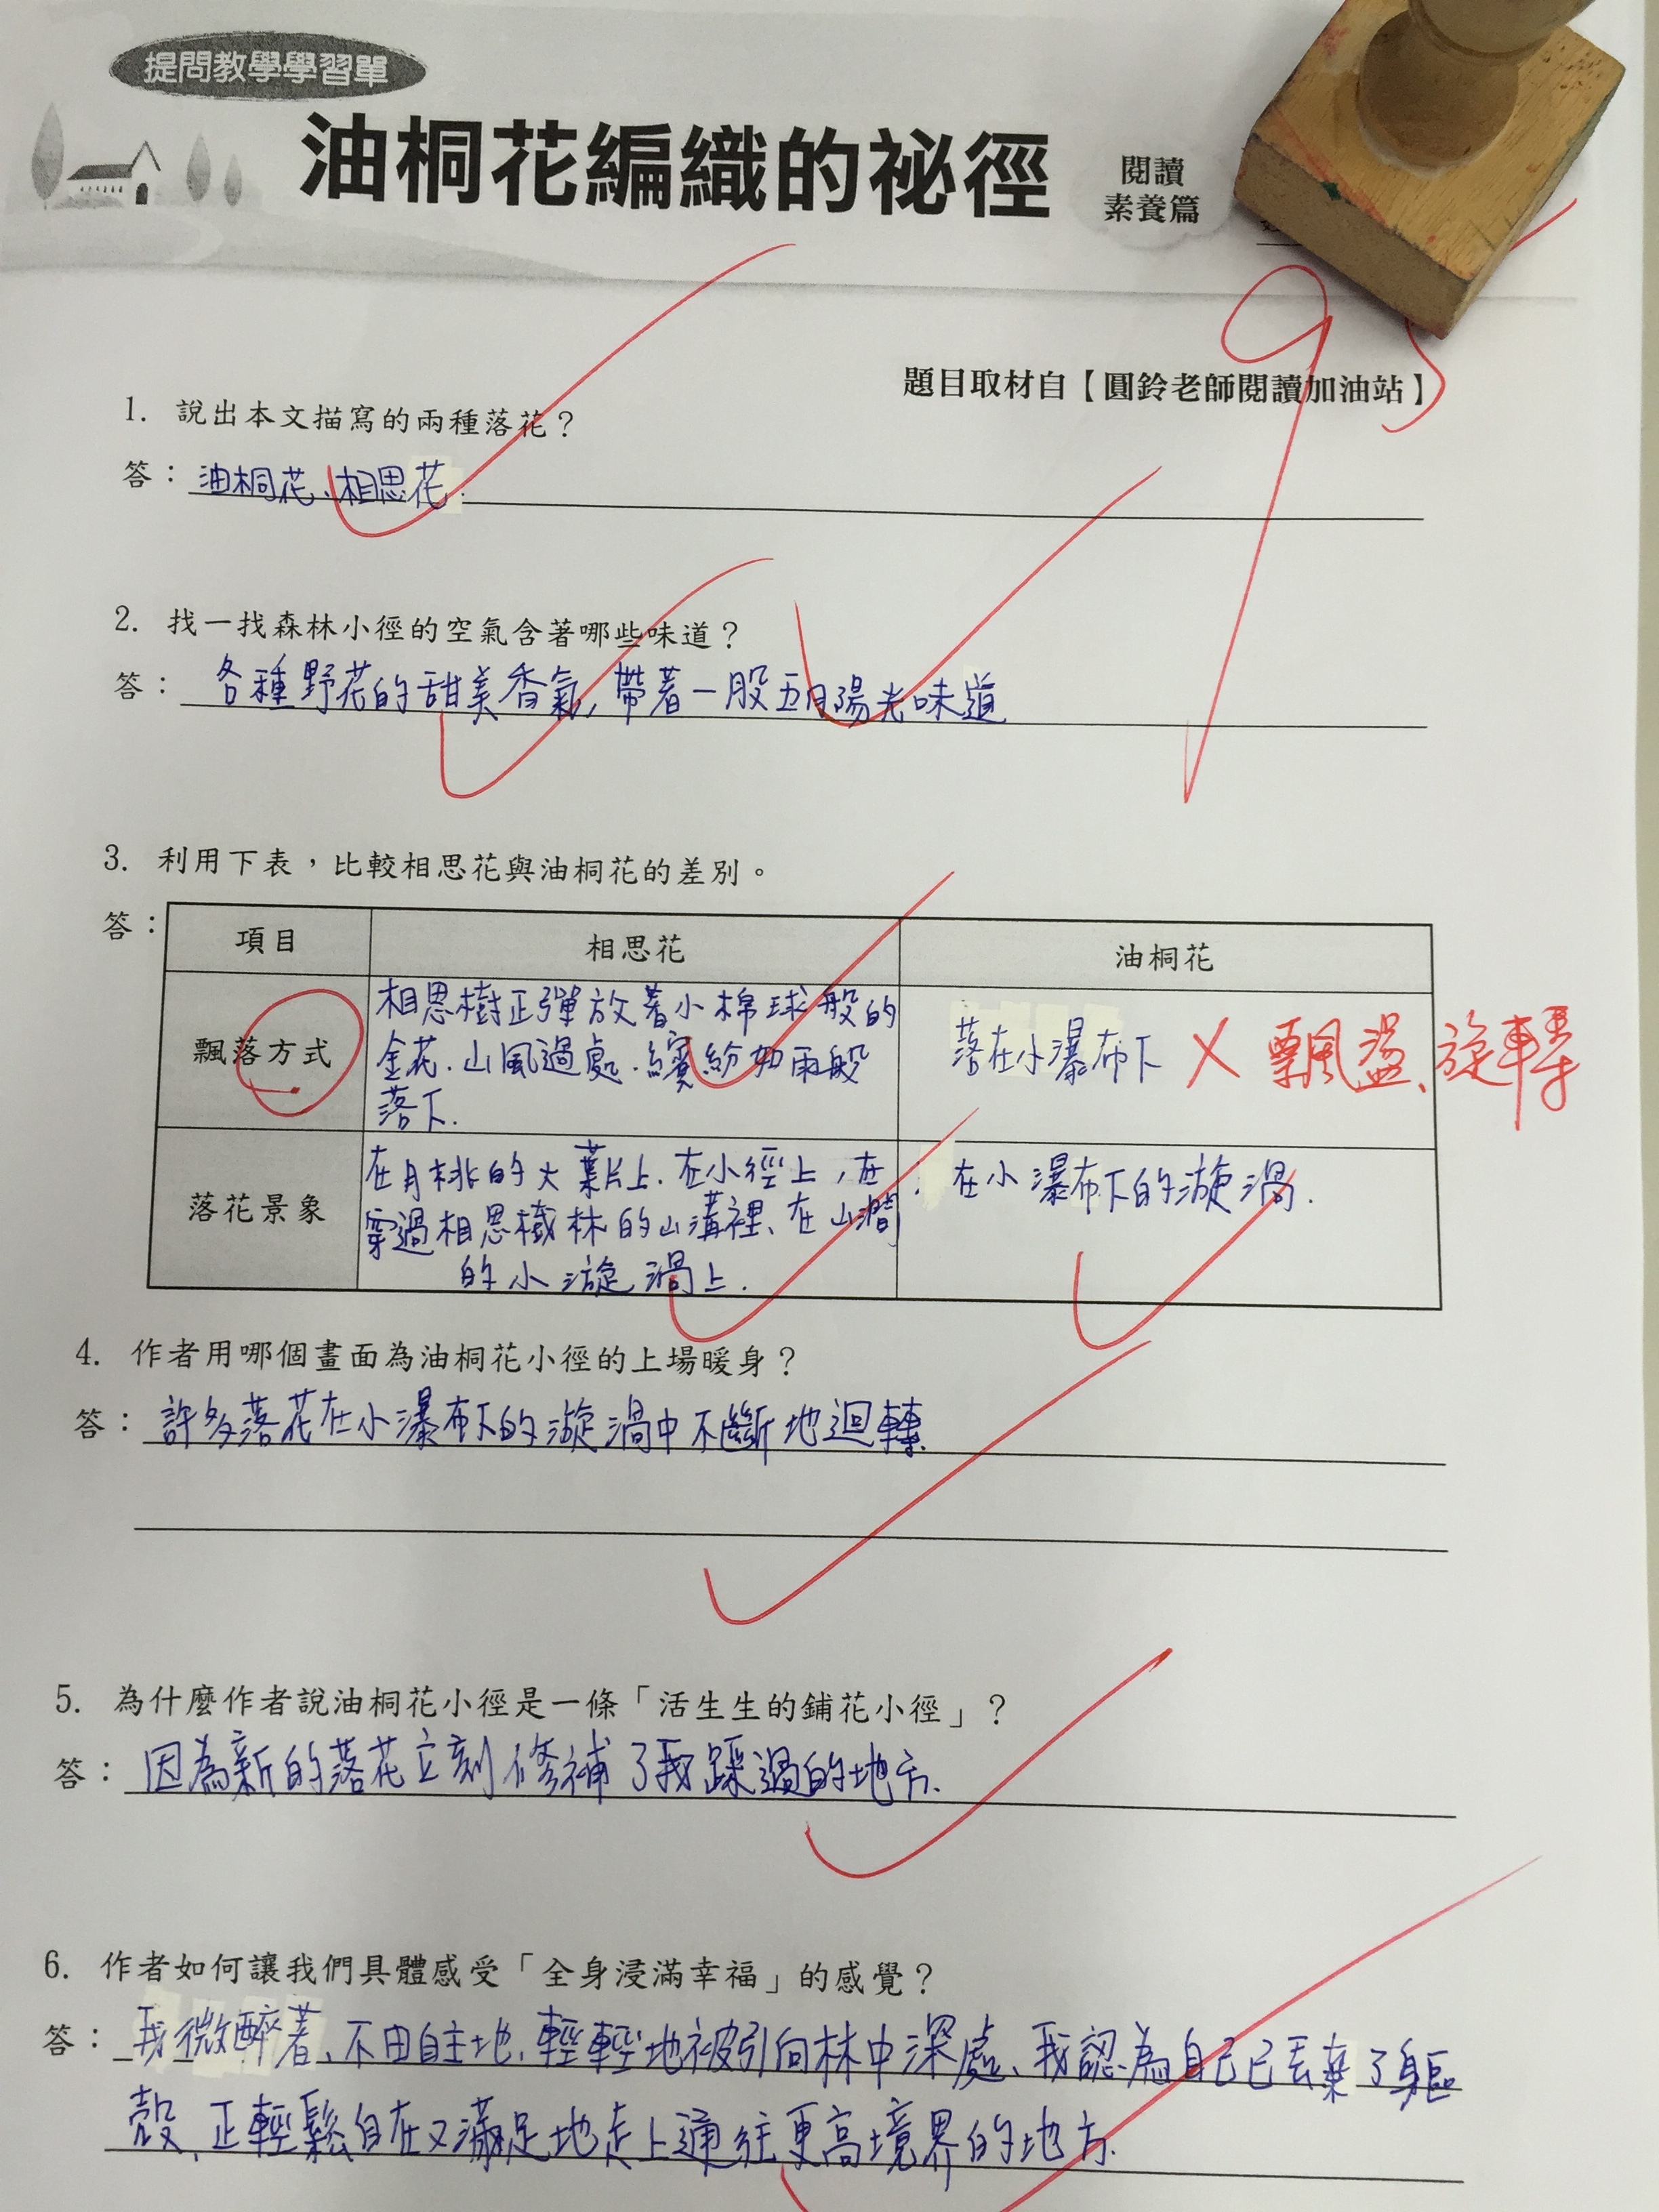 提問教學學習單
油桐花編織的祕徑
閱讀
素養篇
95
題目取材自【圓鈴老師閱讀加油站】
1. 說出本文描寫的兩種落花？
答：油桐花、相思花.
2. 找一找森林小徑的空氣含著哪些味道？
答：各種野花的甜美香氣,帶著一股五月陽光味道
3. 利用下表，比較相思花與油桐花的差別。
答：
項目 相思花 油桐花
飄落方式
相思樹正彈放著小棉球般的
金花.山風過處.繽紛如雨般
落下.
落在小瀑布下 × 飄盪、旋轉
落花景象
在月桃的大葉片上.在小徑上,在
穿過相思樹林的山溝裡、在山澗
的小漩渦上.
在小瀑布下的漩渦.
4. 作者用哪個畫面為油桐花小徑的上場暖身？
答：許多落花在小瀑布下的漩渦中不斷地迴轉.
5. 為什麼作者說油桐花小徑是一條「活生生的鋪花小徑」？
答：因為新的落花立刻修補了我踩過的地方.
6. 作者如何讓我們具體感受「全身浸滿幸福」的感覺？
答：我微醉著、不由自主地、輕輕地被引向林中深處、我認為自己已丟棄了身軀
殼、正輕鬆自在又滿足地走上通往更高境界的地方.